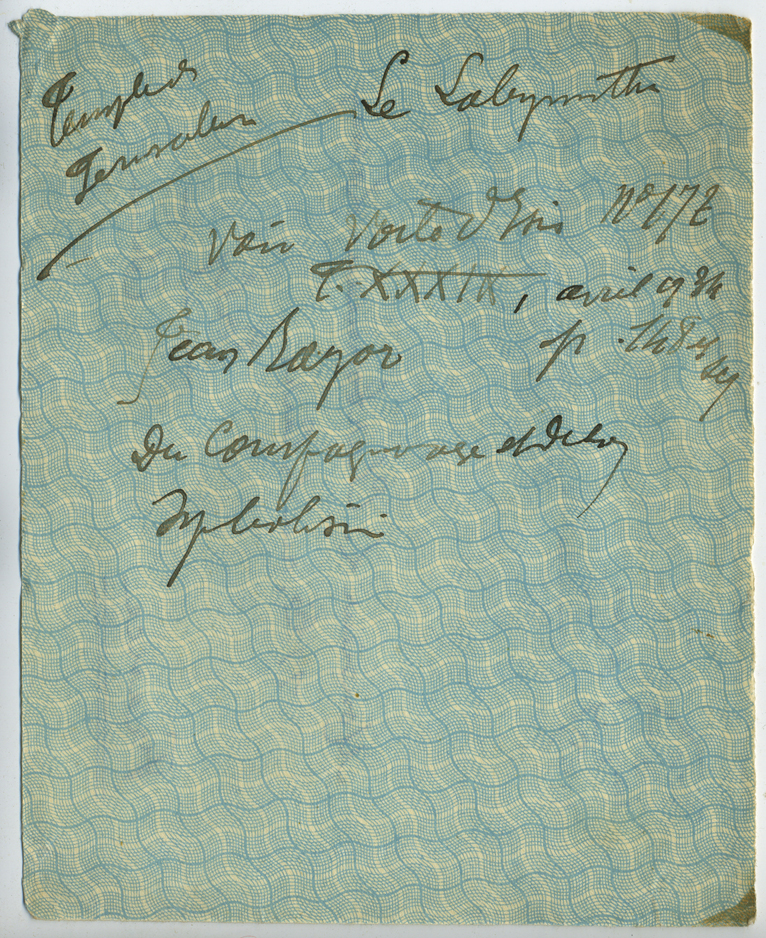 Temple de
Jerusalem
Le Labyrinthe
Voir Voile d'Isis n° 172
T. XXXIX, avril 1934
Jean Reyor p.
Du Compagnonnage et de son
Symbolisme